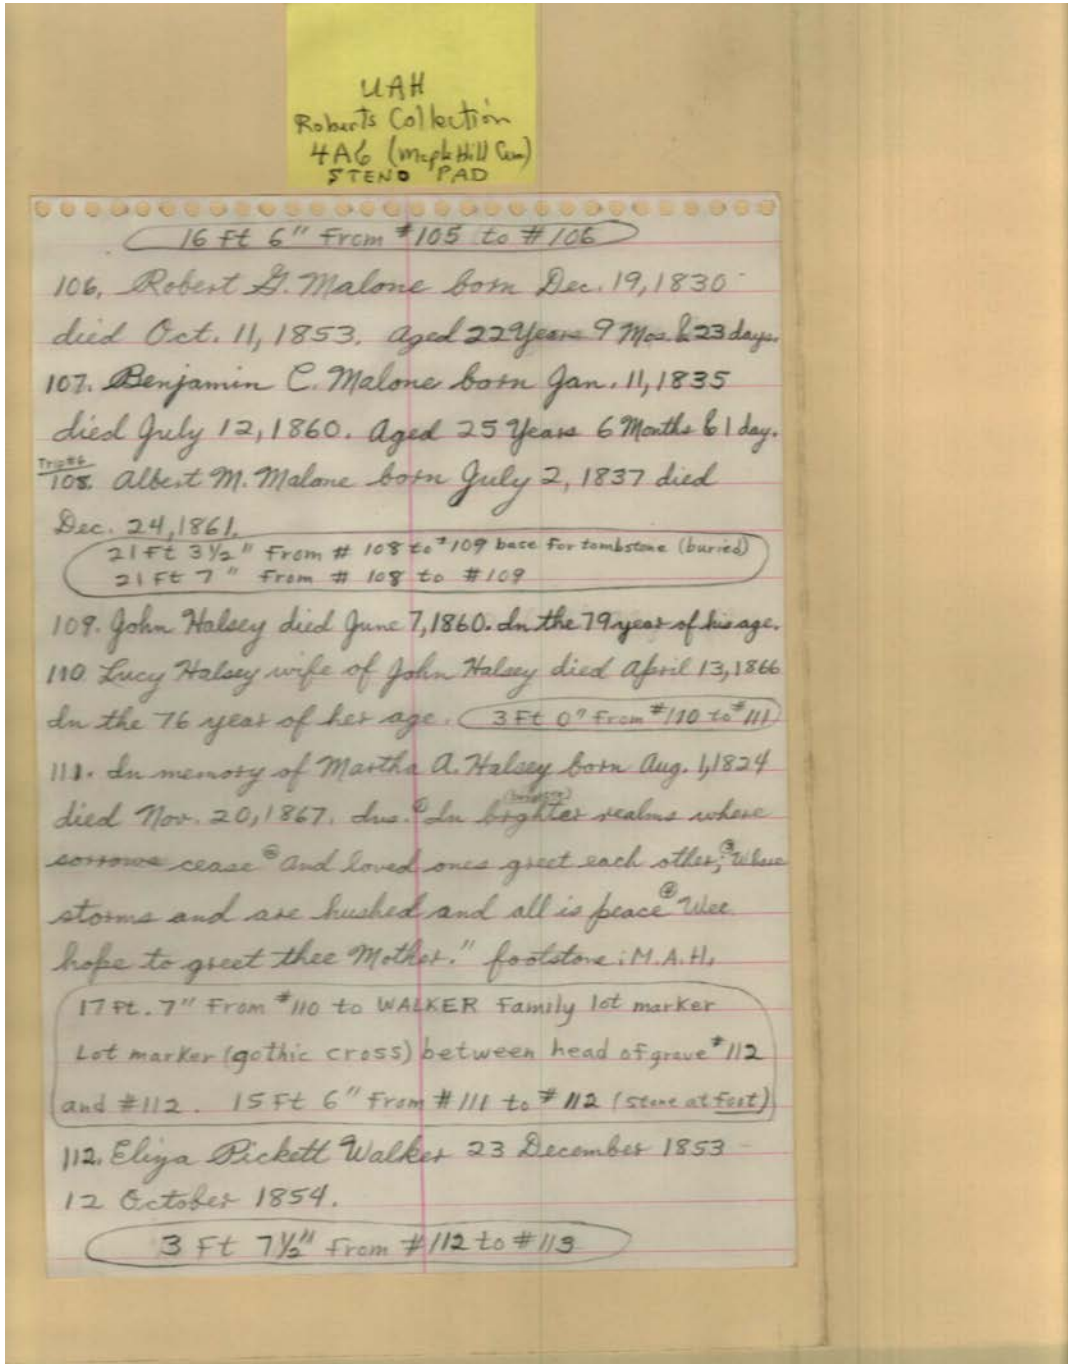 UAH
Roberts Collection
4A6 (Maple Hill Cem)
STENO PAD
16 Ft 6" From #105 to #106
106. Robert G. Malone born Dec. 19, 1830
died Oct. 11, 1853. Aged 22 Years 9 Mos. & 23 days.
107. Benjamin C. Malone born Jan. 11, 1835
died July 12, 1860. Aged 25 Years 6 Months & 1 day.
Trip #6
108. Albert M. Malone born July 2, 1837 died
Dec. 24, 1861.
21 Ft 3 1/2" From # 108 to #109 base For tombstone (buried)
21 Ft 7" From # 108 to #109
109. John Halsey died June 7, 1860. In the 79 year of his age.
110 Lucy Halsey wife of John Halsey died April 13, 1866
In the 76 year of her age. 3 Ft 0" From #110 to #111
111. In memory of Martha A. Halsey born Aug. 1, 1824
died Nov. 20, 1867. Ins. ① "In brghter realms where
sorrows cease ② and loved ones greet each other, ③ Where
storms and are hushed and all is peace ④ Wee
hope to greet thee Mother." footstone: M.A.H.
17 Ft. 7" From #110 to WALKER Family lot marker
Lot marker (gothic cross) between head of grave #112
and #112. 15 Ft 6" From #111 to #112 (stone at foot)
112. Eliza Pickett Walker 23 December 1853 -
12 October 1854.
3 Ft 7 1/2" From #112 to #113